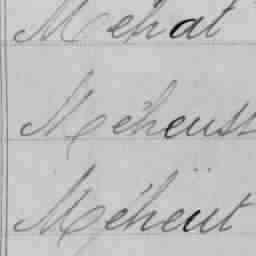 Méhat
Méheust
Méheüt